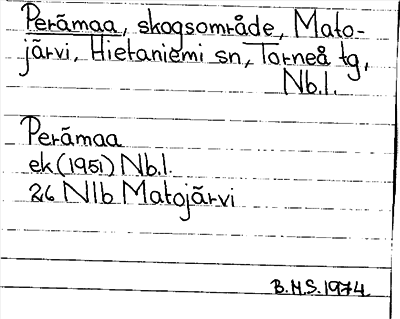 Perämaa, skogsområde, Mato-
järvi, Hietaniemi sn, Torneå tg,
Nb.l.
Perämaa
ek (1951) Nb.l.
26 NIb Matojärvi
B.M.S. 1974